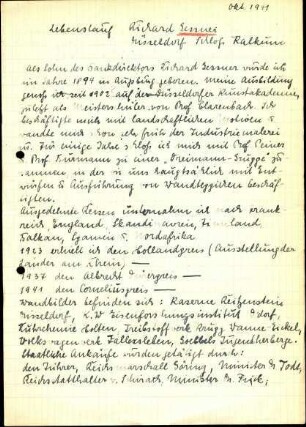 Okt. 1941
Lebenslauf Richard Gessner
Düsseldorf Schloß Kalkum
Als Sohn des Bankdirektors Richard Gessner wurde ich
im Jahre 1894 in Augsburg geboren. Meine Ausbildung
genoß ich seit 1912 auf der Düsseldorfer Kunstakademie,
zuletzt als Meisterschüler von Prof Clarenbach. Ich
beschäftigte mich mit landschaftlichen Motiven &
wandte mich schon sehr früh der Industriemalerei
zu. Für einige Jahre schloß ich mich mit Prof Peiner
& Prof zu einer "Dreimann-Gruppe" zu
sammen in der wir uns hauptsächlich mit Ent
würfen & Ausführung von Wandteppichen beschäf-
tigten.
Ausgedehnte Reisen unternahm ich nach Frank
reich England, Skandinavien, Finnland,
Balkan, Spanien & Nordafrika
1923 erhielt ich den Hollandpreis (Ausstellung der
Länder am Rhein,
1937 den Albrecht Dürerpreis —
1941 den Corneliuspreis —
Wandbilder befinden sich: Kaserne Reitzenstein
Düsseldorf, K.W. Eisenforschungsinstitut Ddorf,
Ruhrchemie Holten, Treibstoffwerk Krupp Wanne-Eickel,
Volkswagenwerk Fallersleben, Jugendherberge.
Staatliche Ankäufe wurden getätigt durch:
den Führer, Reichsmarschall Göring, Minister Dr Todt,
Reichsstatthalter v. Schirach, Minister Dr. Frick;